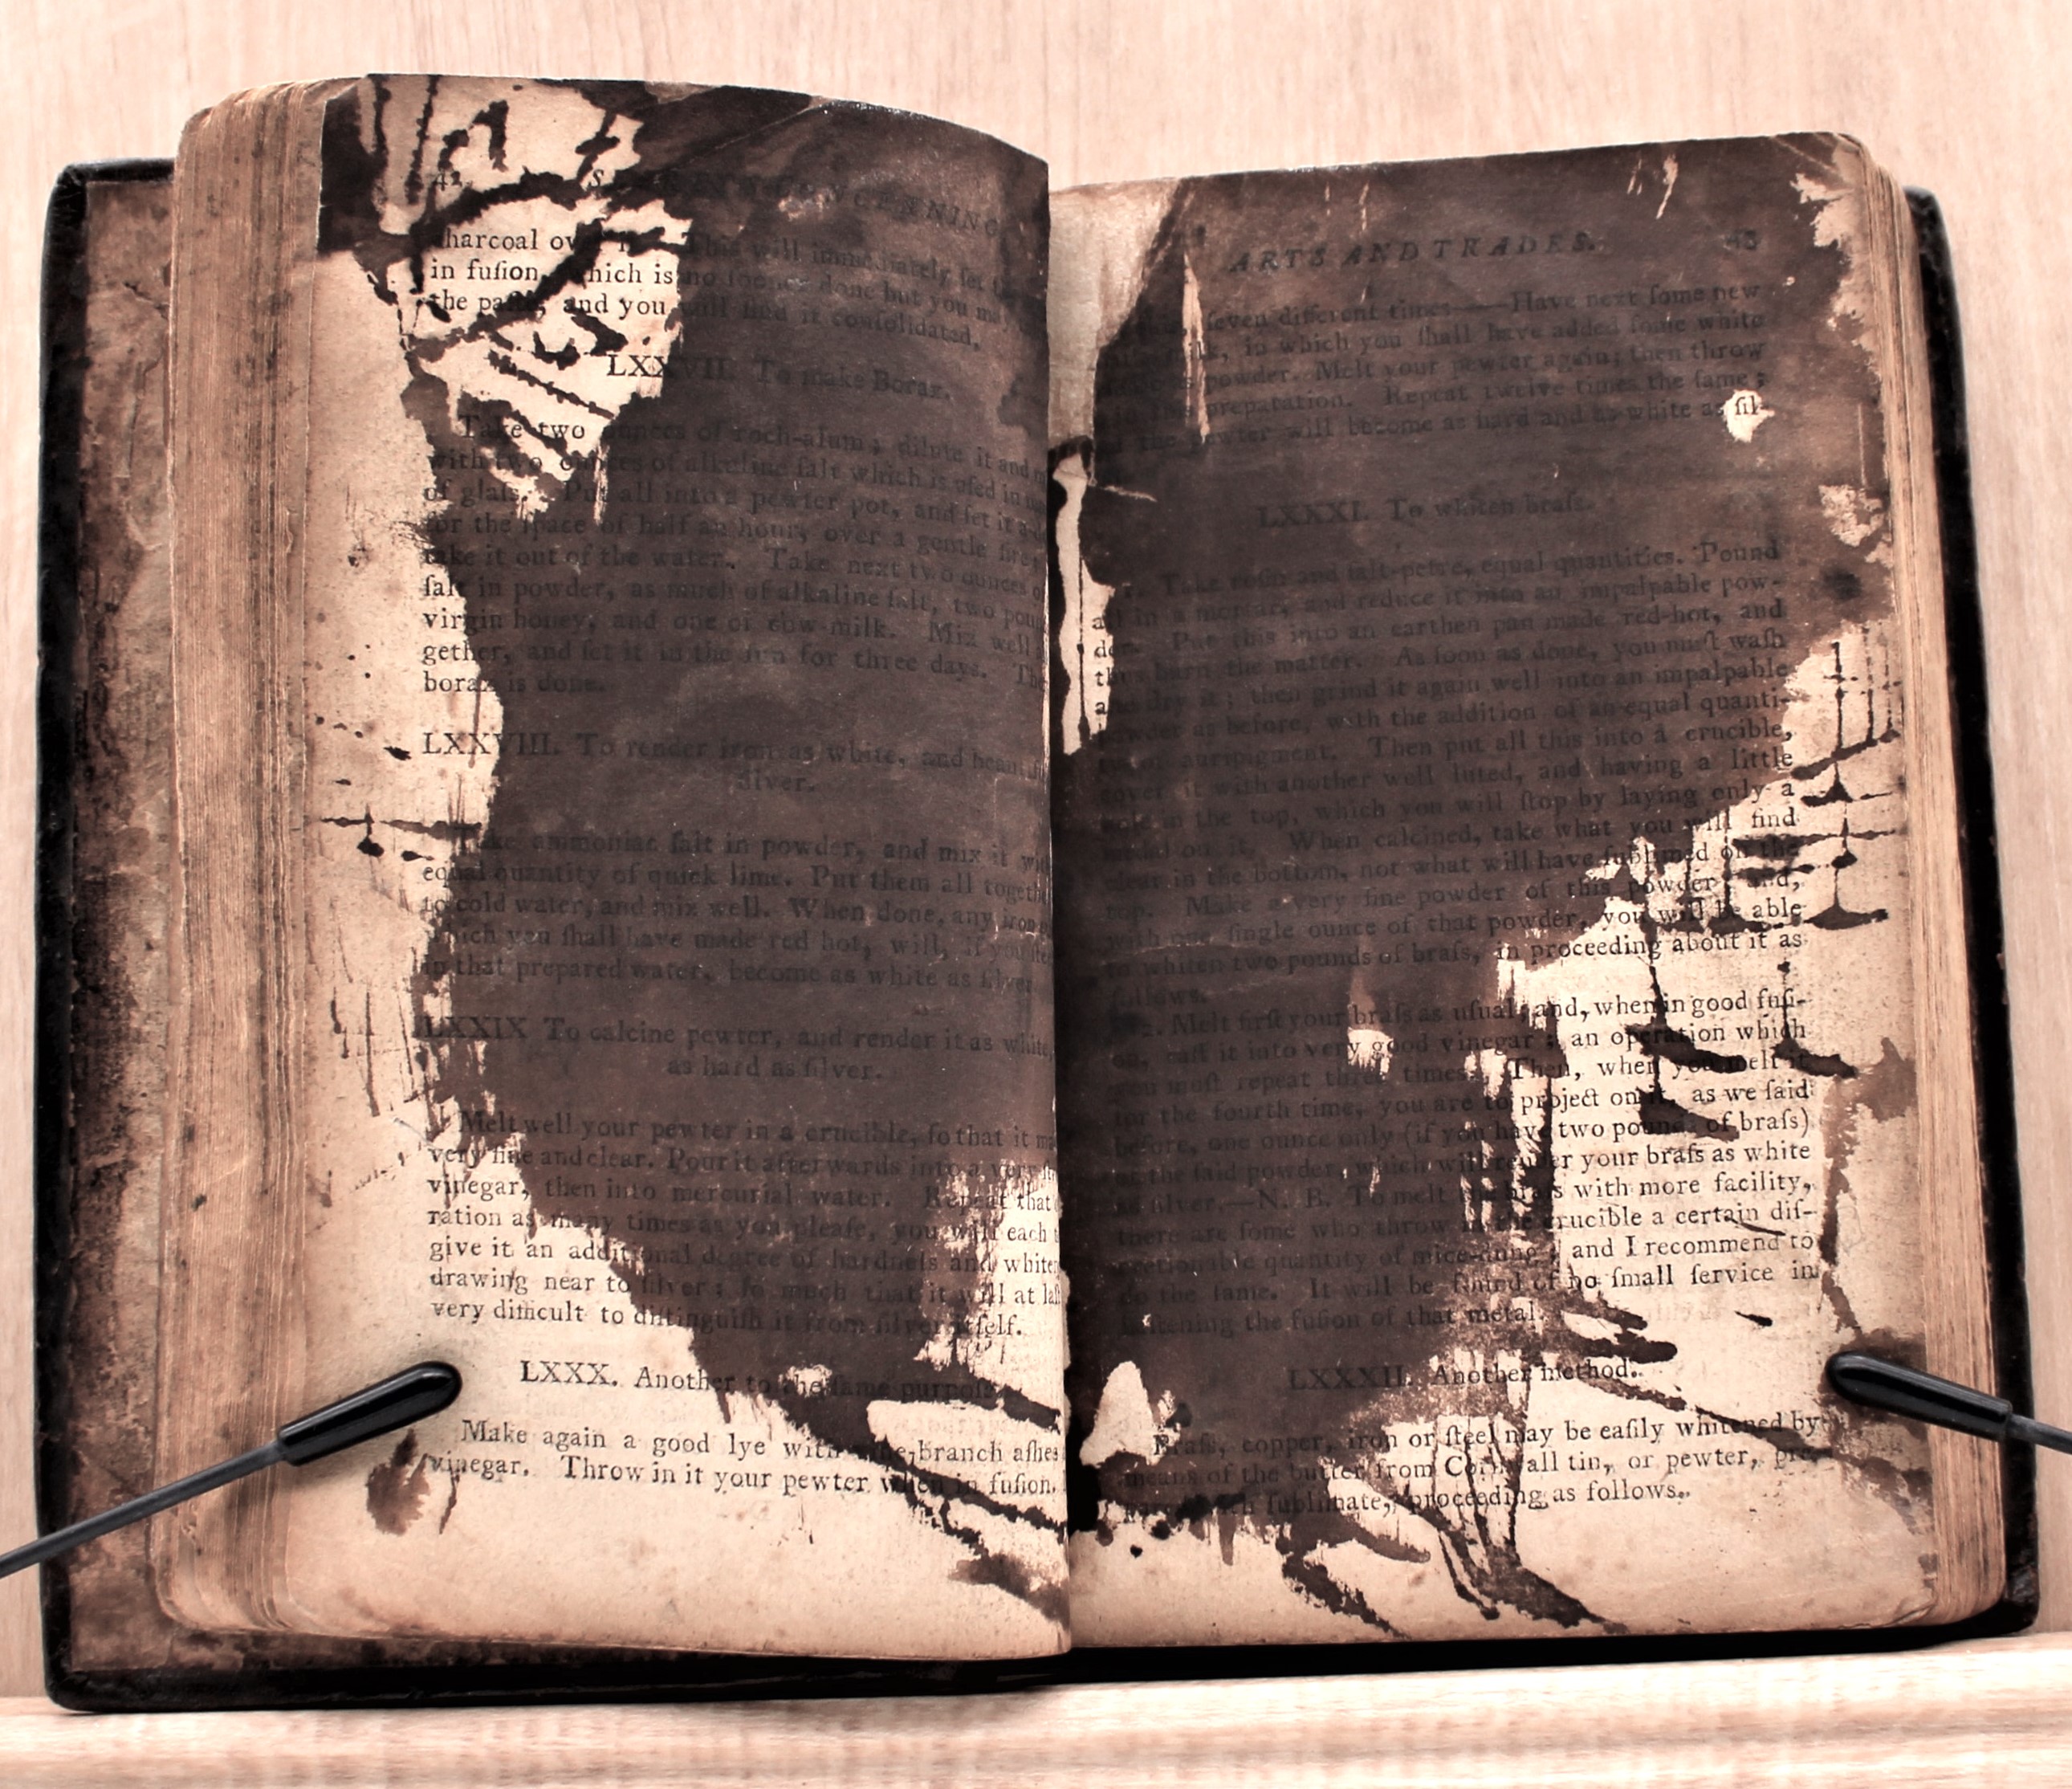 42 SECRETS CONCERNING
charcoal over it. This will immediately set
in fuſion, which is no ſooner done but you may
the paste, and you will find it conſolidated.
LXXVII. To make Borax.
Take two ounces of roch-alum; dilute it and
with two ounces of alkaline ſalt which is uſed in
of glaſs. Put all into a pewter pot, and ſet it
for the ſpace of half an hour, over a gentle fire;
take it out of the water. Take next two ounces
ſalt in powder, as much of alkaline ſalt, two
virgin honey, and one of cow milk. Mix well
gether, and ſet it in the ſun for three days. The
borax is done.
LXXVIII. To render iron as white, and
silver.
Take ammoniac ſalt in powder, and mix it with
equal quantity of quick lime. Put them all
to cold water, and mix well. When done, any iron
which you ſhall have made red hot, will, if you
in that prepared water, become as white as ſilver
LXXIX To calcine pewter, and render it as white,
as hard as ſilver.
Melt well your pewter in a crucible, ſo that it
very fine and clear. Pour it afterwards into a very
vinegar, then into mercurial water. Repeat that
ration as many times as you pleaſe, you will each
give it an additional degree of hardneſs and
drawing near to ſilver; ſo much that it will at
very difficult to diſtinguiſh it from ſilver itſelf.
LXXX. Another to the ſame purpoſe
Make again a good lye with branch aſhes
vinegar. Throw in it your pewter when in fuſion.
ARTS AND TRADES. 43
ſeven different times.——Have next ſome new
in which you ſhall have added ſome white
powder. Melt your pewter again; then throw
in this preparation. Repeat twelve times the ſame;
the pewter will become as hard and as white as ſil-
LXXXI. To whiten braſs.
Take roſin and ſalt-petre, equal quantities. Pound
all in a mortar, and reduce it into an impalpable pow-
der. Put this into an earthen pan made red-hot, and
thus burn the matter. As ſoon as done, you muſt waſh
and dry it; then grind it again well into an impalpable
powder as before, with the addition of an equal quanti-
ty of auripigment. Then put all this into a crucible,
cover it with another well luted, and having a little
hole in the top, which you will ſtop by laying only a
medal on it. When calcined, take what you will find
clear in the bottom, not what will have ſublimed on the
top. Make a very fine powder of this powder; and,
with one ſingle ounce of that powder, you will be able
to whiten two pounds of braſs, in proceeding about it as
follows.
2. Melt firſt your braſs as uſual; and, when in good fuſi-
on, caſt it into very good vinegar; an operation which
you muſt repeat three times. Then, when you melt it
for the fourth time, you are to project on it, as we ſaid
before, one ounce only (if you have two pounds of braſs)
of the ſaid powder, which will render your braſs as white
as ſilver.—N. B. To melt the braſs with more facility,
there are ſome who throw in the crucible a certain diſ-
cretionable quantity of mice-dung; and I recommend to
do the ſame. It will be found of no ſmall ſervice in
haſtening the fuſion of that metal.
LXXXII. Another method.
Braſs, copper, iron or ſteel may be eaſily whitened by
means of the butter from Cornwall tin, or pewter, pre-
pared with ſublimate, proceeding as follows.